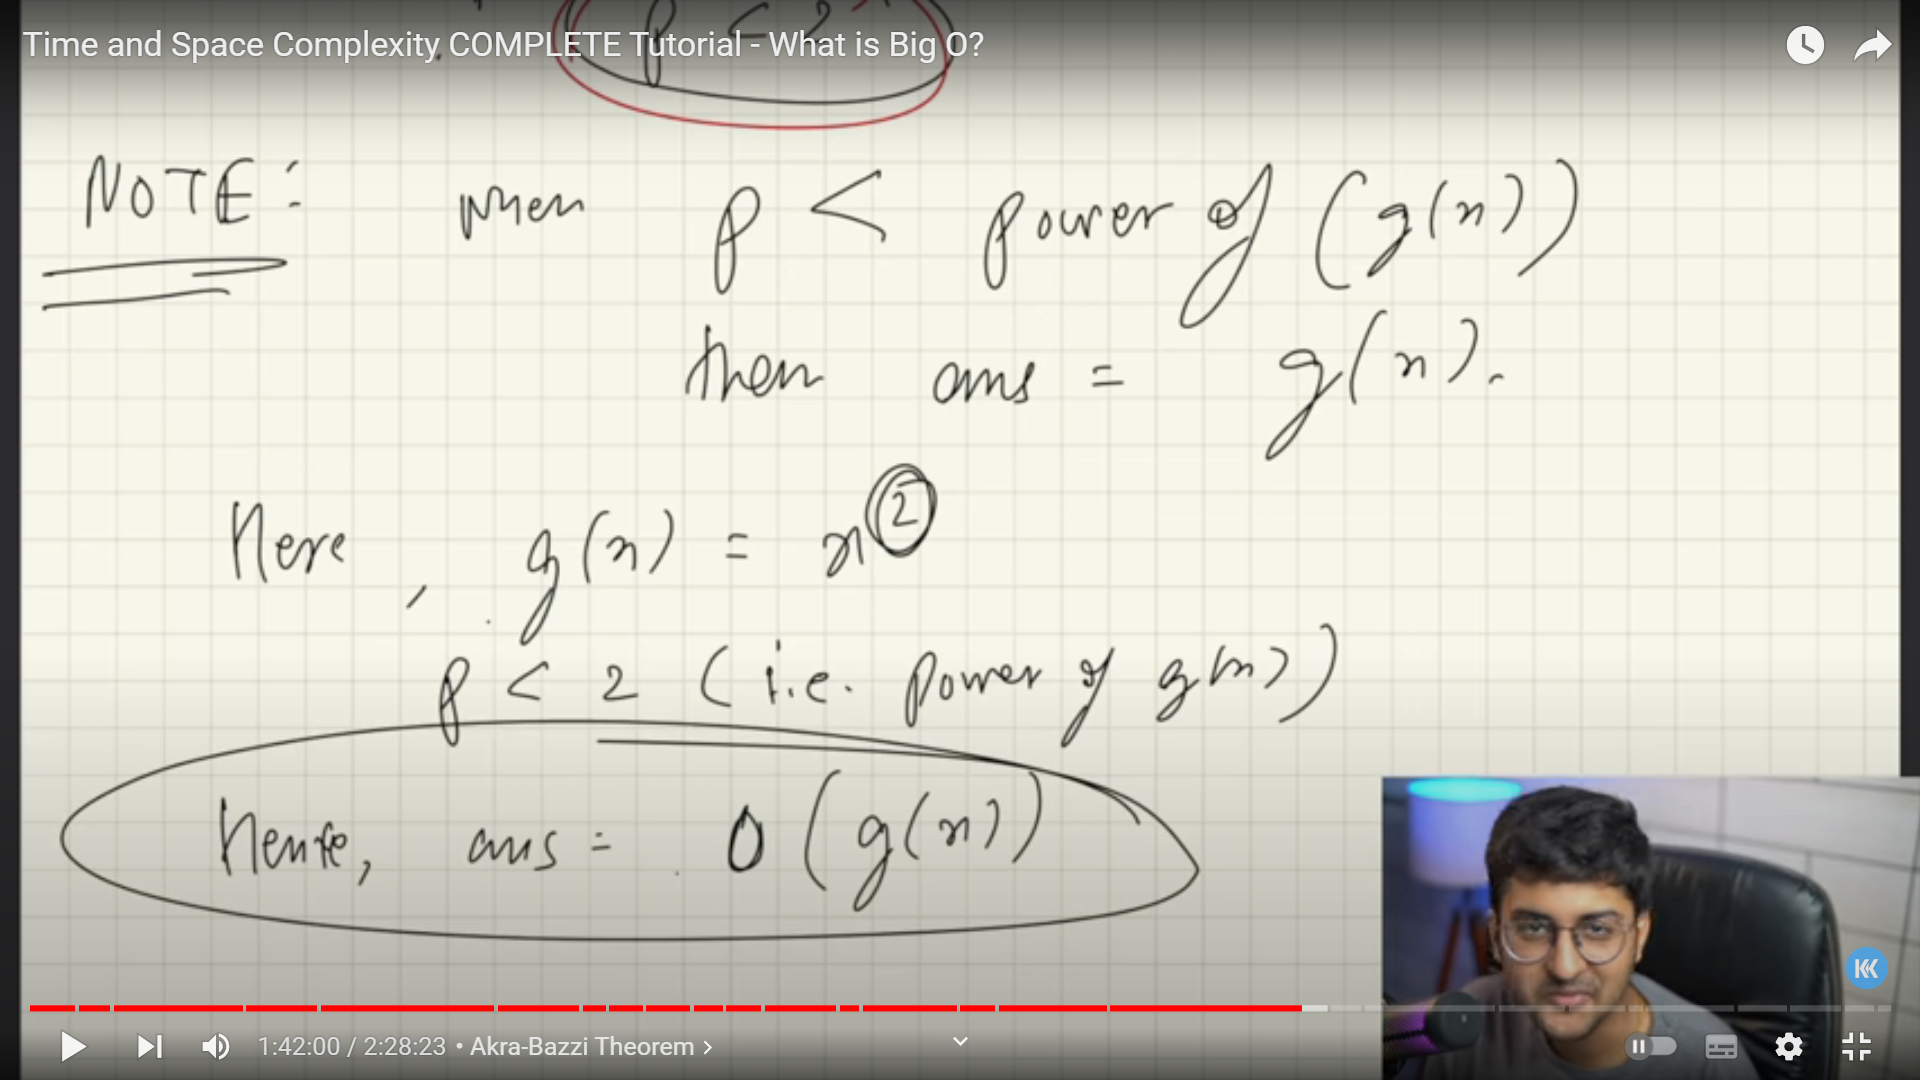 p < 2
Time and Space Complexity COMPLETE Tutorial - What is Big O?
NOTE: when p < power of (g(n))
then ans = g(n).
Here, g(n) = n²
p < 2 (i.e. power of g(n))
Hence, ans = O(g(n))
1:42:00 / 2:28:23 • Akra-Bazzi Theorem >